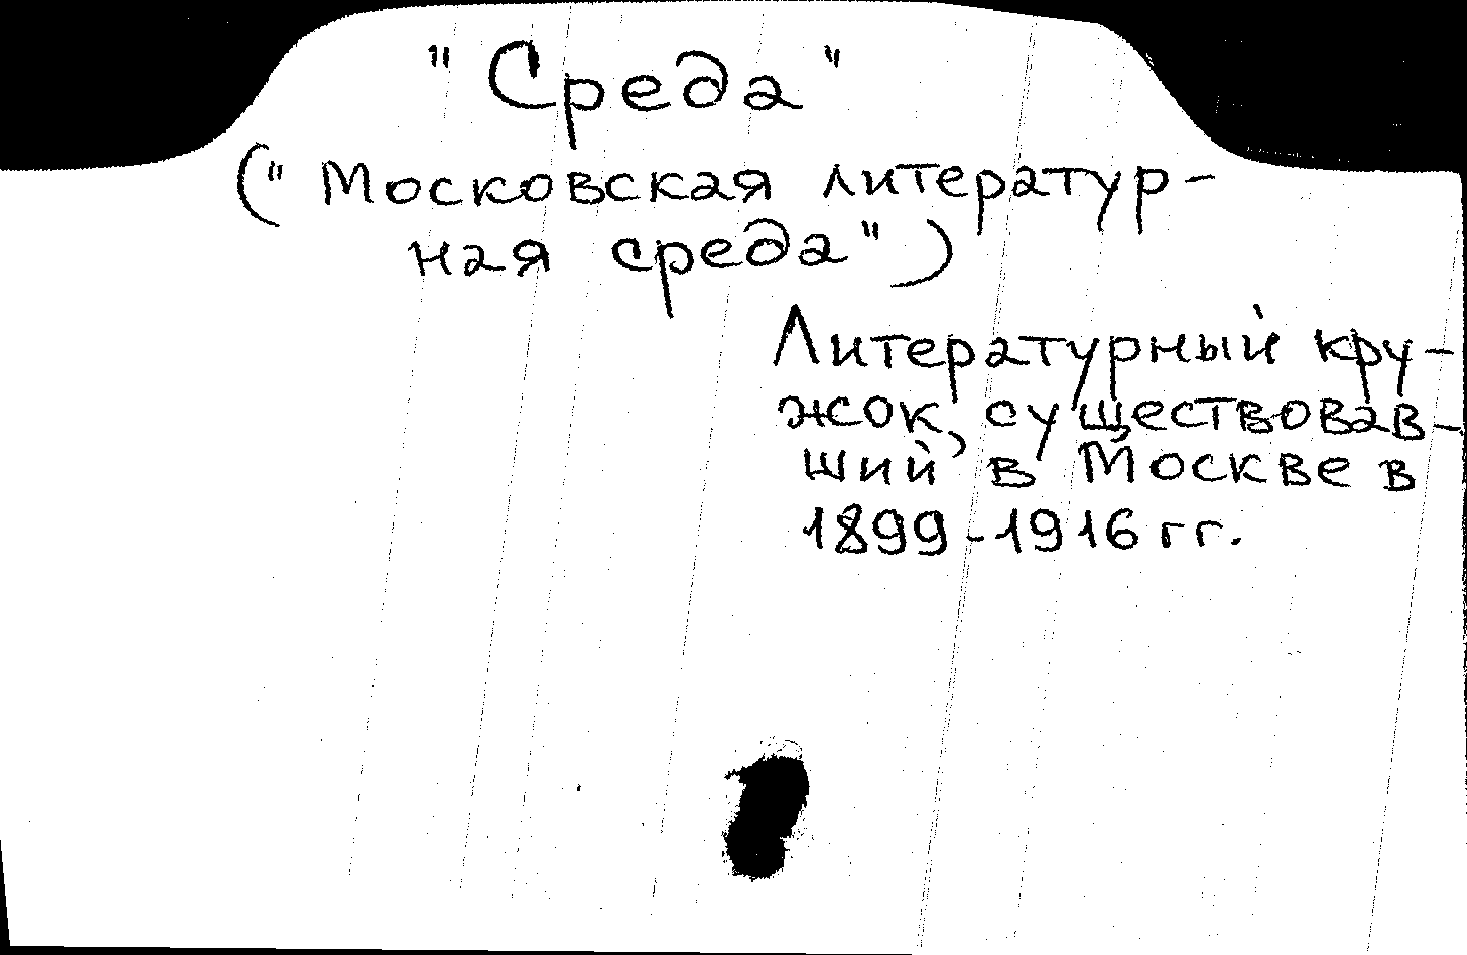 "Среда"
("Московская литератур-
ная среда")
Литературный кру-
жок, существовав-
ший в Москве в
1899-1916 гг.